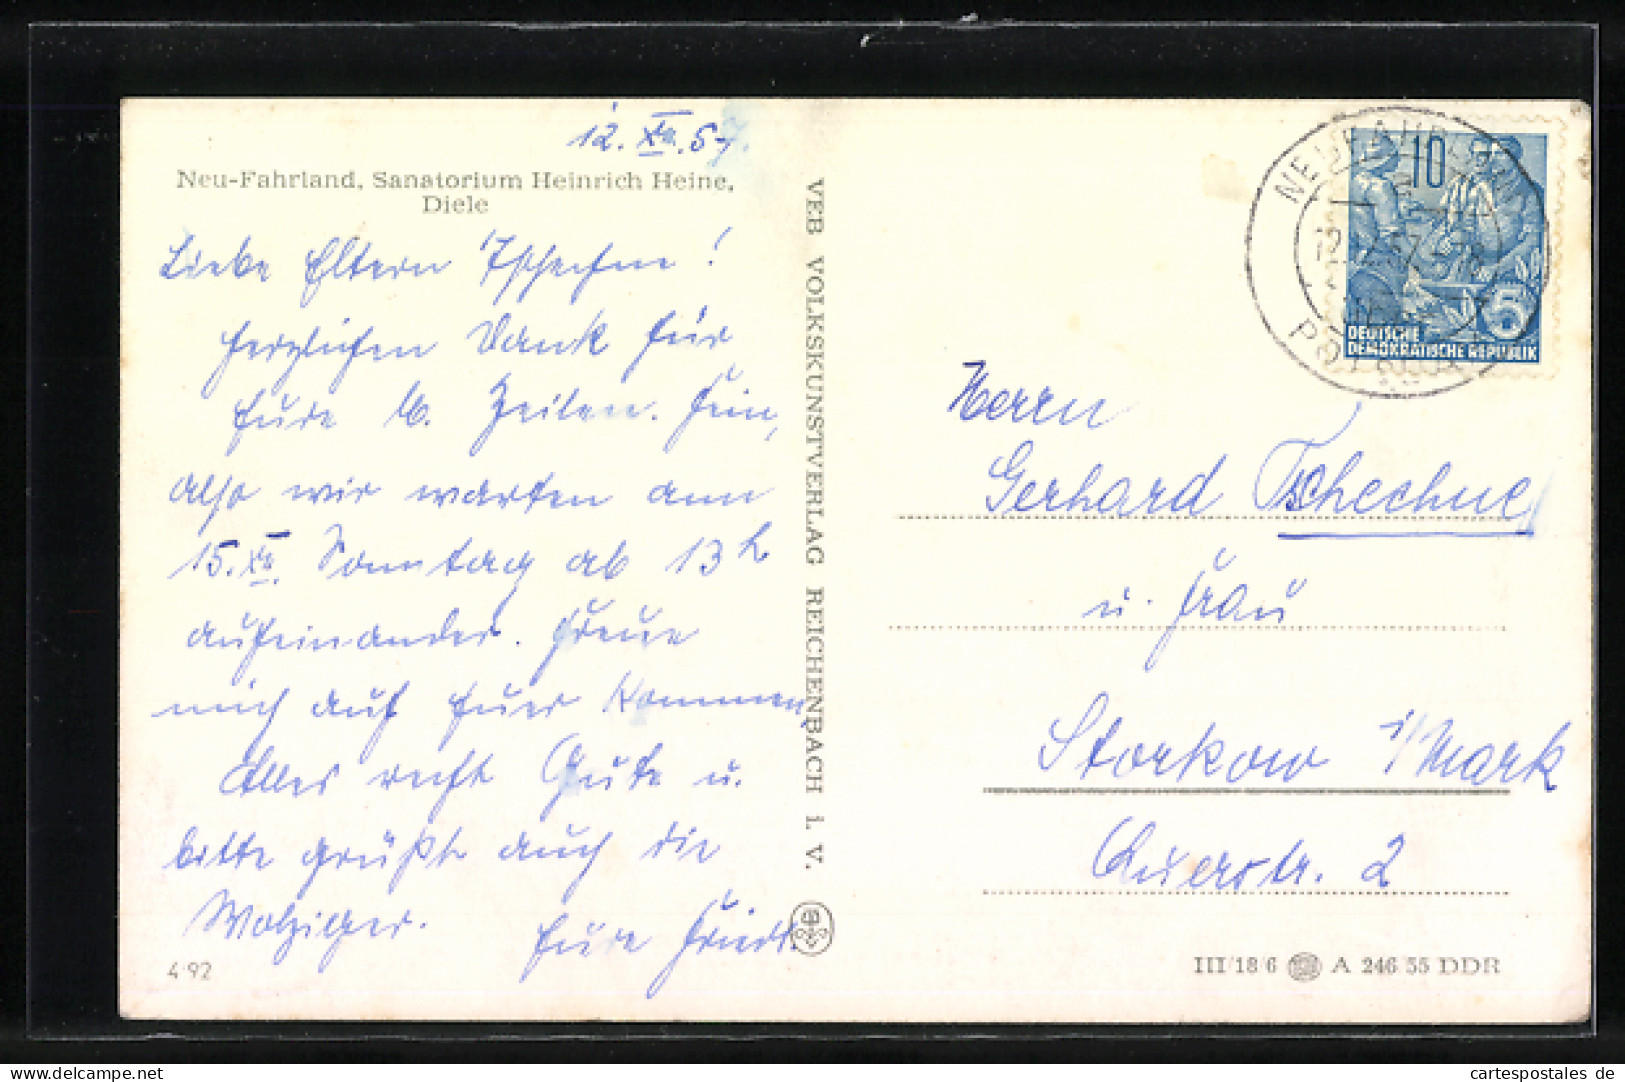 12. XII. 57.
Neu-Fahrland, Sanatorium Heinrich Heine,
Diele
Liebe Eltern Tschechne!
Herzlichen Dank für
Eure lb. Zeilen. Fein,
also wir warten am
15. XII. Sonntag ab 13 h
aufeinander. Freue
mich auf Euer Kommen,
Alles recht Gute u.
bitte grüßt auch die
Wolziger. Eure
4 92
VEB VOLKSKUNSTVERLAG REICHENBACH i. V.
10
5
DEUTSCHE
DEMOKRATISCHE REPUBLIK
NEUFAHRLAND
Herrn
Gerhard Tschechne
u. Frau
Storkow i/Mark
Querstr. 2
III/18/6 A 246 55 DDR
cartespostales de